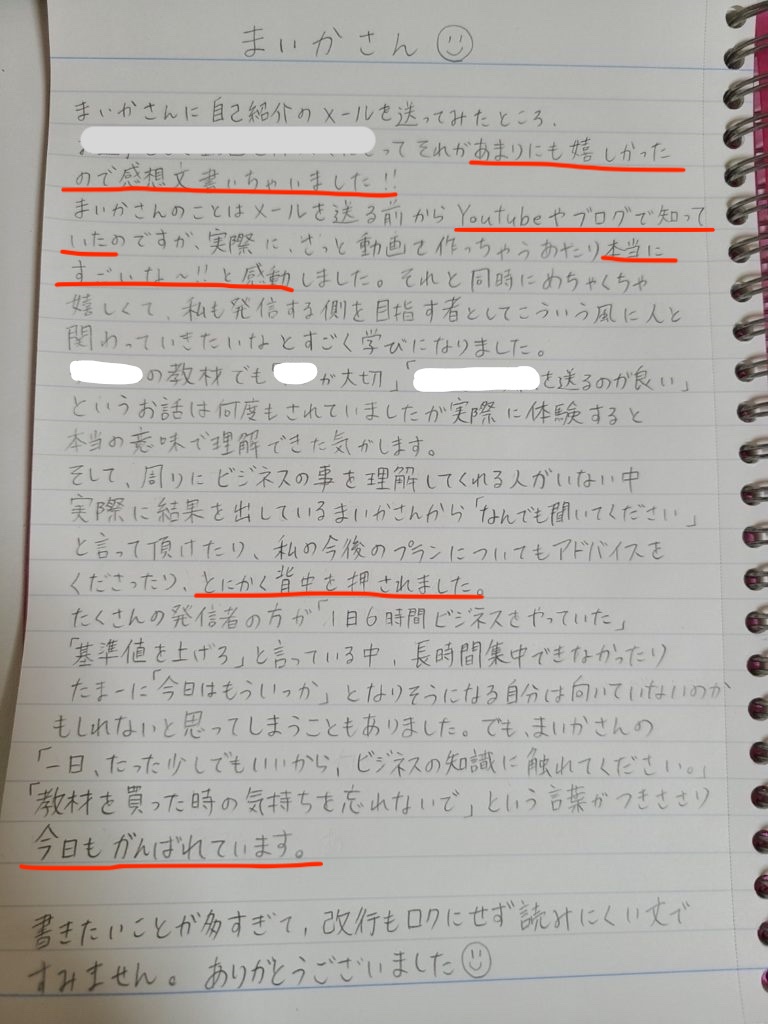 まいかさん
まいかさんに自己紹介のメールを送ってみたところ、
ってそれがあまりにも嬉しかった
ので感想文書いちゃいました!!
まいかさんのことはメールを送る前からYoutubeやブログで知って
いたのですが、実際に、さっと動画を作っちゃうあたり本当に
すごいな〜!!と感動しました。それと同時にめちゃくちゃ
嬉しくて、私も発信する側を目指す者としてこういう風に人と
関わっていきたいなとすごく学びになりました。
の教材でも「が大切」「を送るのが良い」
というお話は何度もされていましたが実際に体験すると
本当の意味で理解できた気がします。
そして、周りにビジネスの事を理解してくれる人がいない中
実際に結果を出しているまいかさんから「なんでも聞いてください」
と言って頂けたり、私の今後のプランについてもアドバイスを
くださったり、とにかく背中を押されました。
たくさんの発信者の方が「1日6時間ビジネスをやっていた」
「基準値を上げろ」と言っている中、長時間集中できなかったり
たまーに「今日はもういっか」となりそうになる自分は向いていないのか
もしれないと思ってしまうこともありました。でも、まいかさんの
「一日、たった少しでもいいから、ビジネスの知識に触れてください。」
「教材を買った時の気持ちを忘れないで」という言葉がつきささり
今日もがんばれています。
書きたいことが多すぎて、改行もロクにせず読みにくい文で
すみません。ありがとうございました